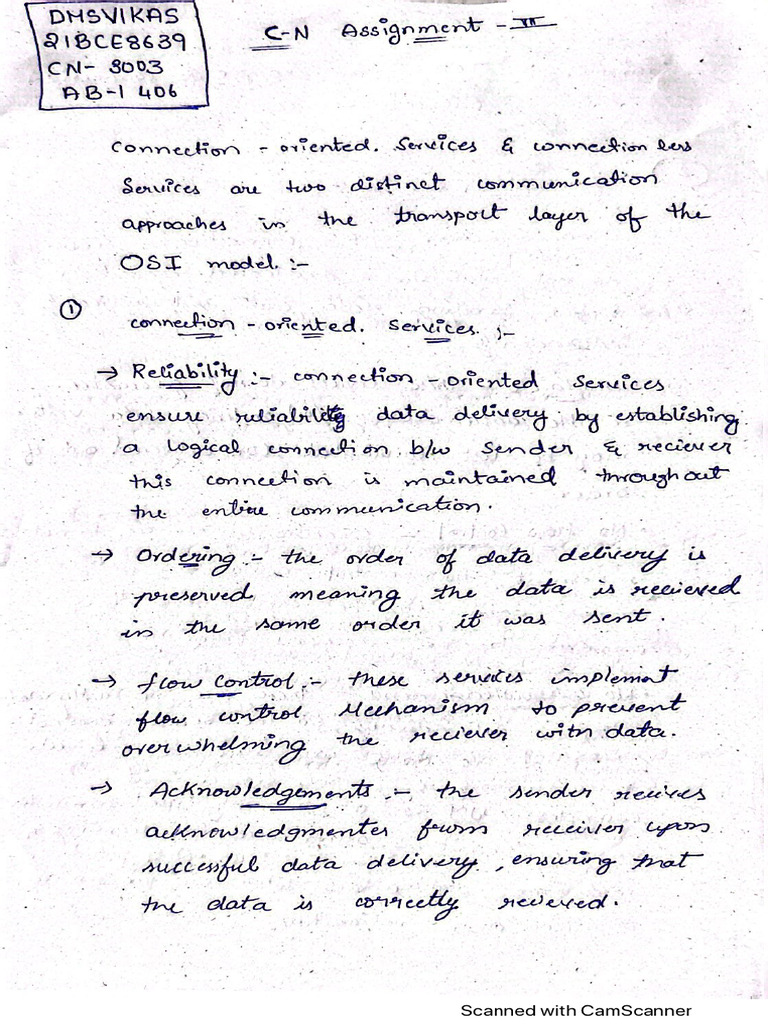 DMSVIKAS
21BCE8639
CN- 3003
AB-1 406
C-N Assignment - VI
connection - oriented. Services & connection less
Services are two distinct communication
approaches in the transport layer of the
OSI model :-
① connection - oriented. Services :-
→ Reliability :- connection - oriented Services
ensure reliability data delivery by establishing
a logical connection b/w sender & reciever
this connection is maintained throughout
the entire communication.
→ Ordering :- the order of data delivery is
preserved meaning the data is recieved
in the same order it was sent.
→ flow control :- these services implement
flow control Mechanism to prevent
overwhelming the reciever with data.
→ Acknowledgements :- the sender recives
acknowledgmentes from receiver upon
successful data delivery, ensuring that
the data is correctly recieved.
Scanned with CamScanner